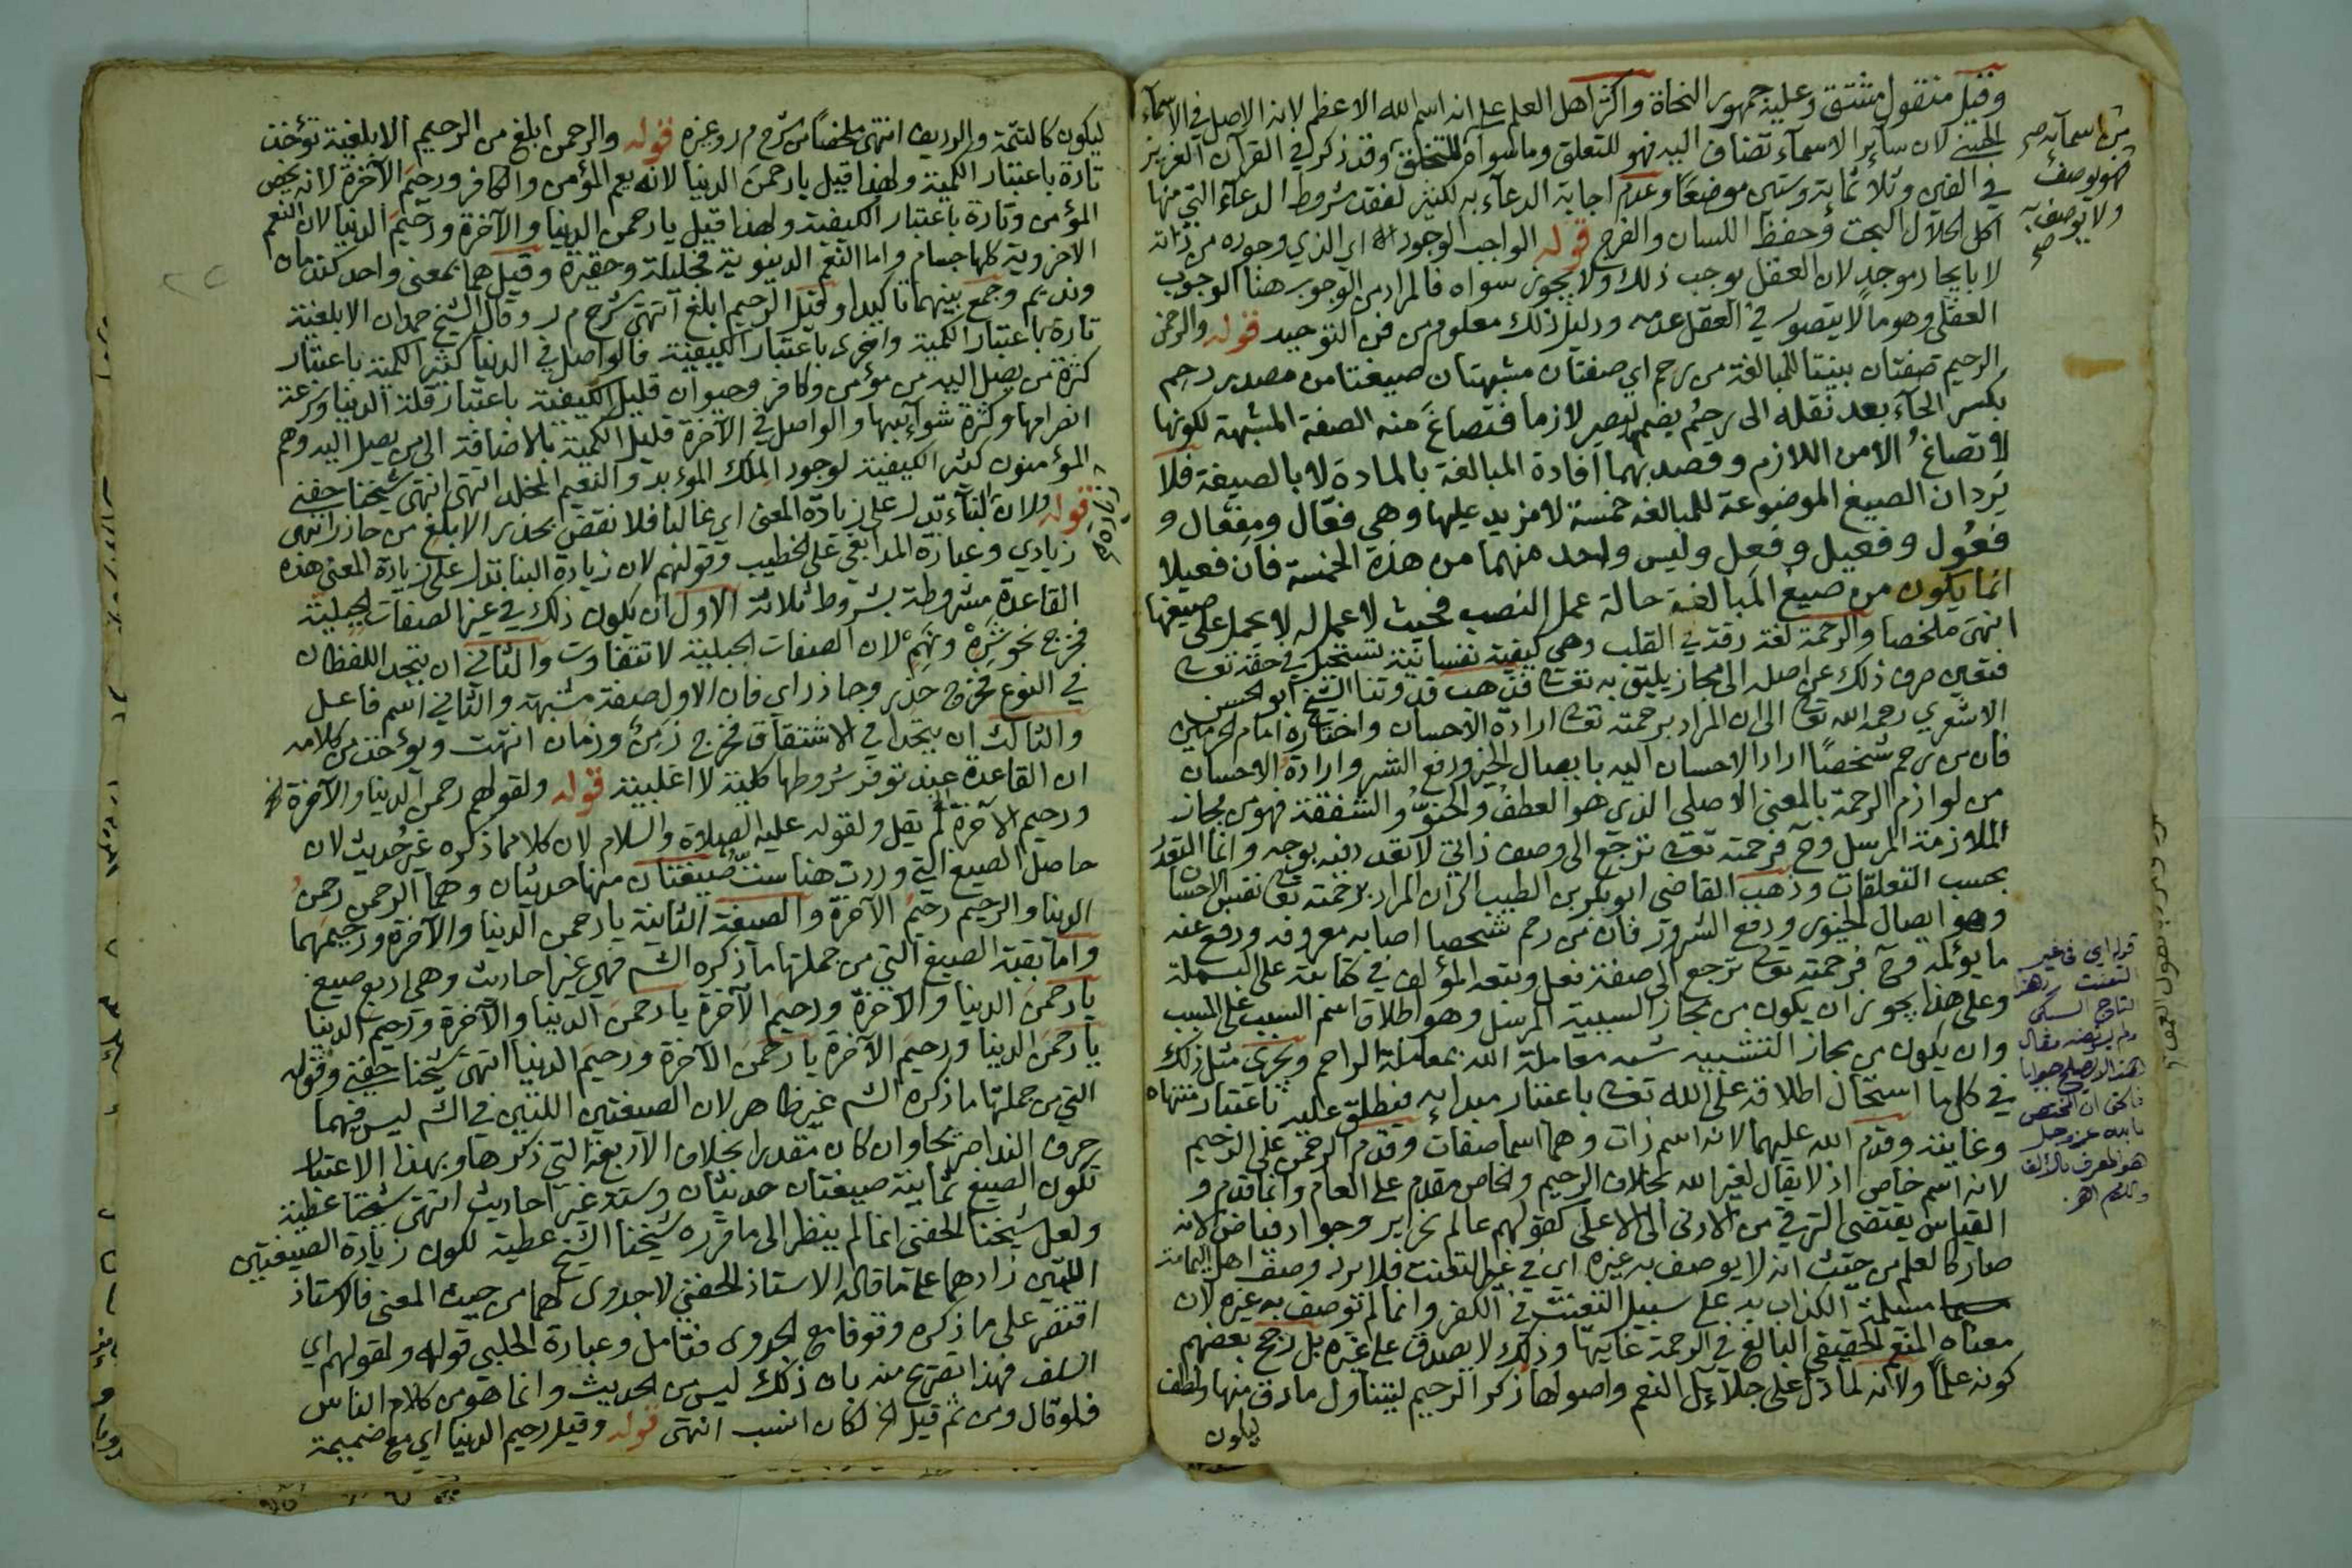 وقيل منقول مشتق وعليه جمهور النحاة واكثر اهل العلم على انه اسم الله الاعظم لانه الاصل في الاسمآء
الحسنى لان سائر الاسمآء تضاف اليه فهو للتعلق وما سواه للتخلق وقد ذكر في القرآن العزيز
في الفين وثلاثمائة وستين موضعا وعدم اجابة الدعآء به لكثير لفقد شروط الدعآء التي منها
اكل الحلال البحت وحفظ اللسان والفرج قوله الواجب الوجود اه اي الذي وجوده من ذاته
لا بايجاد موجد لان العقل يوجب ذلك ولا يجوز سواه فالمراد من الوجوب هنا الوجوب
العقلي وهو ما لا يتصور في العقل عدمه ودليل ذلك معلوم من فن التوحيد قوله والرحمن
الرحيم صفتان بنيتا للمبالغة من رحم اي صفتان مشبهتان صيغتا من مصدر رحم
بكسر الحآء بعد نقله الى رحُم بضم ليصير لازما فتصاغ منه الصفة المشبهة لكونها
لا تصاغ الا من اللازم وقصد بهما افادة المبالغة بالمادة لا بالصيغة فلا
يرد ان الصيغ الموضوعة للمبالغة خمسة لا مزيد عليها وهي فعّال ومِفعال و
فعُول وفعيل وفعِل وليس واحد منهما من هذه الخمسة فان فعيلا
انما يكون من صيغ المبالغة حالة عمل النصب فحيث لا عمل له لا يحمل على صيغها
انتهى ملخصا والرحمة لغة رقة في القلب وهي كيفية نفسانية تستحيل في حقه تعالى
فتعين صرف ذلك عن اصله الى مجاز يليق به تعالى فذهب قدوتنا الشيخ ابو الحسن
الاشعري رحمه الله تعالى الى ان المراد برحمته تعالى ارادة الاحسان واختاره امام الحرمين
فان من رحم شخصًا اراد الاحسان اليه بايصال الخير ودفع الشر وارادة الاحسان
من لوازم الرحمة بالمعنى الاصلي الذي هو العطف والحنو والشفقة فهو من مجاز
الملازمة المرسل وح فرحمته تعالى ترجع الى وصف ذاتي لا تعدد فيه بوجه وانما التعدد
بحسب التعلقات وذهب القاضي ابو بكر بن الطيب الى ان المراد برحمته تعالى نفس الاحسان
وهو ايصال الخيور ودفع الشرور فان من رحم شخصا اصابه معروفه ودفع عنه
ما يؤلمه وح فرحمته تعالى ترجع الى صفة فعل وتبعه المؤلف في كتابته على البسملة
وعلى هذا يجوز ان يكون من مجاز السببية المرسل وهو اطلاق اسم السبب على المسبب
وان يكون من مجاز التشبيه شبه معاملة الله بمعاملة الراحم ويجرى مثل ذلك
في كل ما استحال اطلاقه على الله تعالى باعتبار مبدايه فيطلق عليه باعتبار منتهاه
وغايته وقدم الله عليهما لانه اسم ذات وهما اسما صفات وقدم الرحمن على الرحيم
لانه اسم خاص اذ لا يقال لغير الله بخلاف الرحيم والخاص مقدم على العام وانما قدم و
القياس يقتضى الترقي من الادنى الى الاعلى كقولهم عالم نحرير وجواد فياض لانه
صار كالعلم من حيث انه لا يوصف به غيره اي في غير التعنت فلا يرد وصف اهل اليمامة
مسيلمة الكذاب به على سبيل التعنت في الكفر وانما لم يوصف به غيره لان
معناه المنعم الحقيقي البالغ في الرحمة غايتها وذلك لا يصدق على غيره بل رجح بعضهم
كونه علماً ولانه لما دل على جلائل النعم واصولها ذكر الرحيم ليتناول ما دق منها ولطف
ليكون
من اسمآئه
فهو يوصف
ولا يوصف به
صح
قوله اي في غير
التعنت
التاج السبكي
ولم يرتضه فقال
هذا لا يصلح جوابا
فالحق ان المختص
بالله عز وجل
هو المعرف بالالف
واللام اهـ
ليكون كالتتمة والرديف انتهى ملخصًا من شرح م ر وغيره قوله والرحمن ابلغ من الرحيم الابلغية تؤخذ
تارة باعتبار الكمية ولهذا قيل يا رحمن الدنيا لانه يعم المؤمن والكافر ورحيم الآخرة لانه يخص
المؤمن وتارة باعتبار الكيفية ولهذا قيل يا رحمن الدنيا والآخرة ورحيم الدنيا لان النعم
الاخروية كلها جسام واما النعم الدنيوية فجليلة وحقيرة وقيل هما بمعنى واحد كندمان
ونديم وجمع بينهما تاكيدا وقيل الرحيم ابلغ انتهى شرح م ر وقال الشيخ حمدان الابلغية
تارة باعتبار الكمية واخرى باعتبار الكيفية فالواصل في الدنيا كثير الكمية باعتبار
كثرة من يصل اليه من مؤمن وكافر وحيوان قليل الكيفية باعتبار قلة الدنيا وسرعة
انصرامها وكثرة شوائبها والواصل في الآخرة قليل الكمية بالاضافة الى من يصل اليه وهم
المؤمنون كثير الكيفية لوجود الملك المؤبد والنعيم المخلد انتهى انتهى شيخنا حفني
قوله ولان البنآء تدل على زيادة المعنى اي غالبا فلا نقض بحذر الابلغ من حاذر انتهى
زيادي وعبارة المدابغي على الخطيب وقولهم لان زيادة البنا تدل على زيادة المعنى هذه
القاعدة مشروطة بشروط ثلاثة الاول ان يكون ذلك في غير الصفات الجبلية
فخرج نحو شَرِهْ ونَهِمْ لان الصفات الجبلية لا تتفاوت والثاني ان يتحد اللفظان
في النوع فخرج حذر وحاذر اي فان الاول صفة مشبهة والثاني اسم فاعل
والثالث ان يتحدا في الاشتقاق فخرج زَمِنٌ وزمان انتهت ويؤخذ من كلامه
ان القاعدة عند توفر شروطها كلية لا اغلبية قوله ولقولهم رحمن الدنيا والآخرة الخ
ورحيم الآخرة لم يقل ولقوله عليه الصلاة والسلام لان كلا مما ذكره غير حديث لان
حاصل الصيغ التي وردت هنا ست صيغتان منها حديثان وهما الرحمن رحمن
الدنيا والرحيم رحيم الآخرة والصيغة الثانية يا رحمن الدنيا والآخرة ورحيمهما
واما بقية الصيغ التي من جملتها ما ذكره الش فهي غير احاديث وهي اربع صيغ
يا رحمن الدنيا والآخرة ورحيم الآخرة يا رحمن الدنيا والآخرة ورحيم الدنيا
يا رحمن الدنيا ورحيم الآخرة يا رحمن الآخرة ورحيم الدنيا انتهى شيخنا حفني وقوله
التي من جملتها ما ذكره الش غير ظاهر لان الصيغتين اللتين في الش ليس فيهما
حرف الندا صريحا وان كان مقدرا بخلاف الاربعة التي ذكرها وبهذا الاعتبار
تكون الصيغ ثمانية صيغتان حديثان وستة غير احاديث انتهى شيخنا عطية
ولعل شيخنا الحفني انما لم ينظر الى ما قرره شيخنا الشيخ عطية لكون زيادة الصيغتين
اللتين زادهما على ما قاله الاستاذ الحفني لا جدوى لهما من حيث المعنى فالاستاذ
اقتصر على ما ذكره وقوفا مع الجدوى فتامل وعبارة الحلبي قوله ولقولهم اي
السلف فهذا تصريح منه بان ذلك ليس من الحديث وانما هو من كلام الناس
فلو قال ومن ثم قيل الخ لكان انسب انتهى قوله وقيل رحيم الدنيا اي مع ضميمة